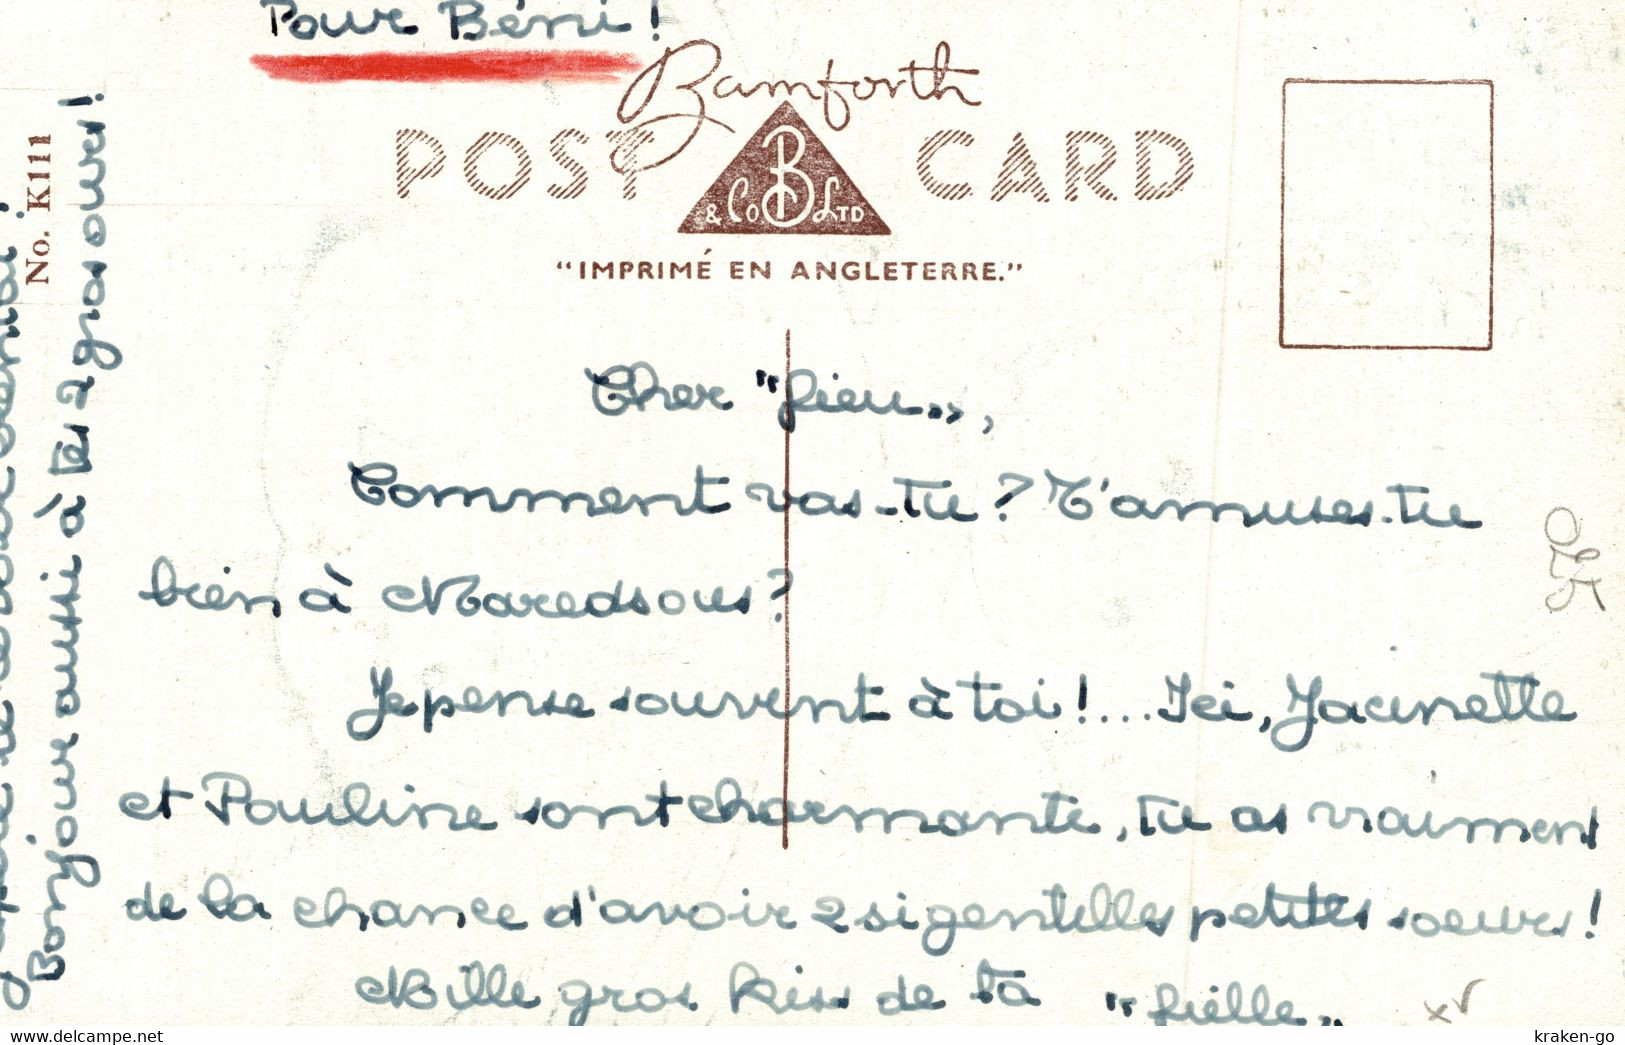 Pour Béni !
Bamforth
POST CARD
& Co B LTD
"IMPRIMÉ EN ANGLETERRE."
No. K111
Cher "fieu",
Comment vas-tu ? T'amuses-tu
bien à Maredsous ?
Je pense souvent à toi !... Ici, Jacinette
et Pauline sont charmante, tu as vraiment
de la chance d'avoir 2 si gentilles petites soeurs !
Mille gros kiss de ta "fielle"
Bonjour aussi à tes 2 gros ours !
kraken-go